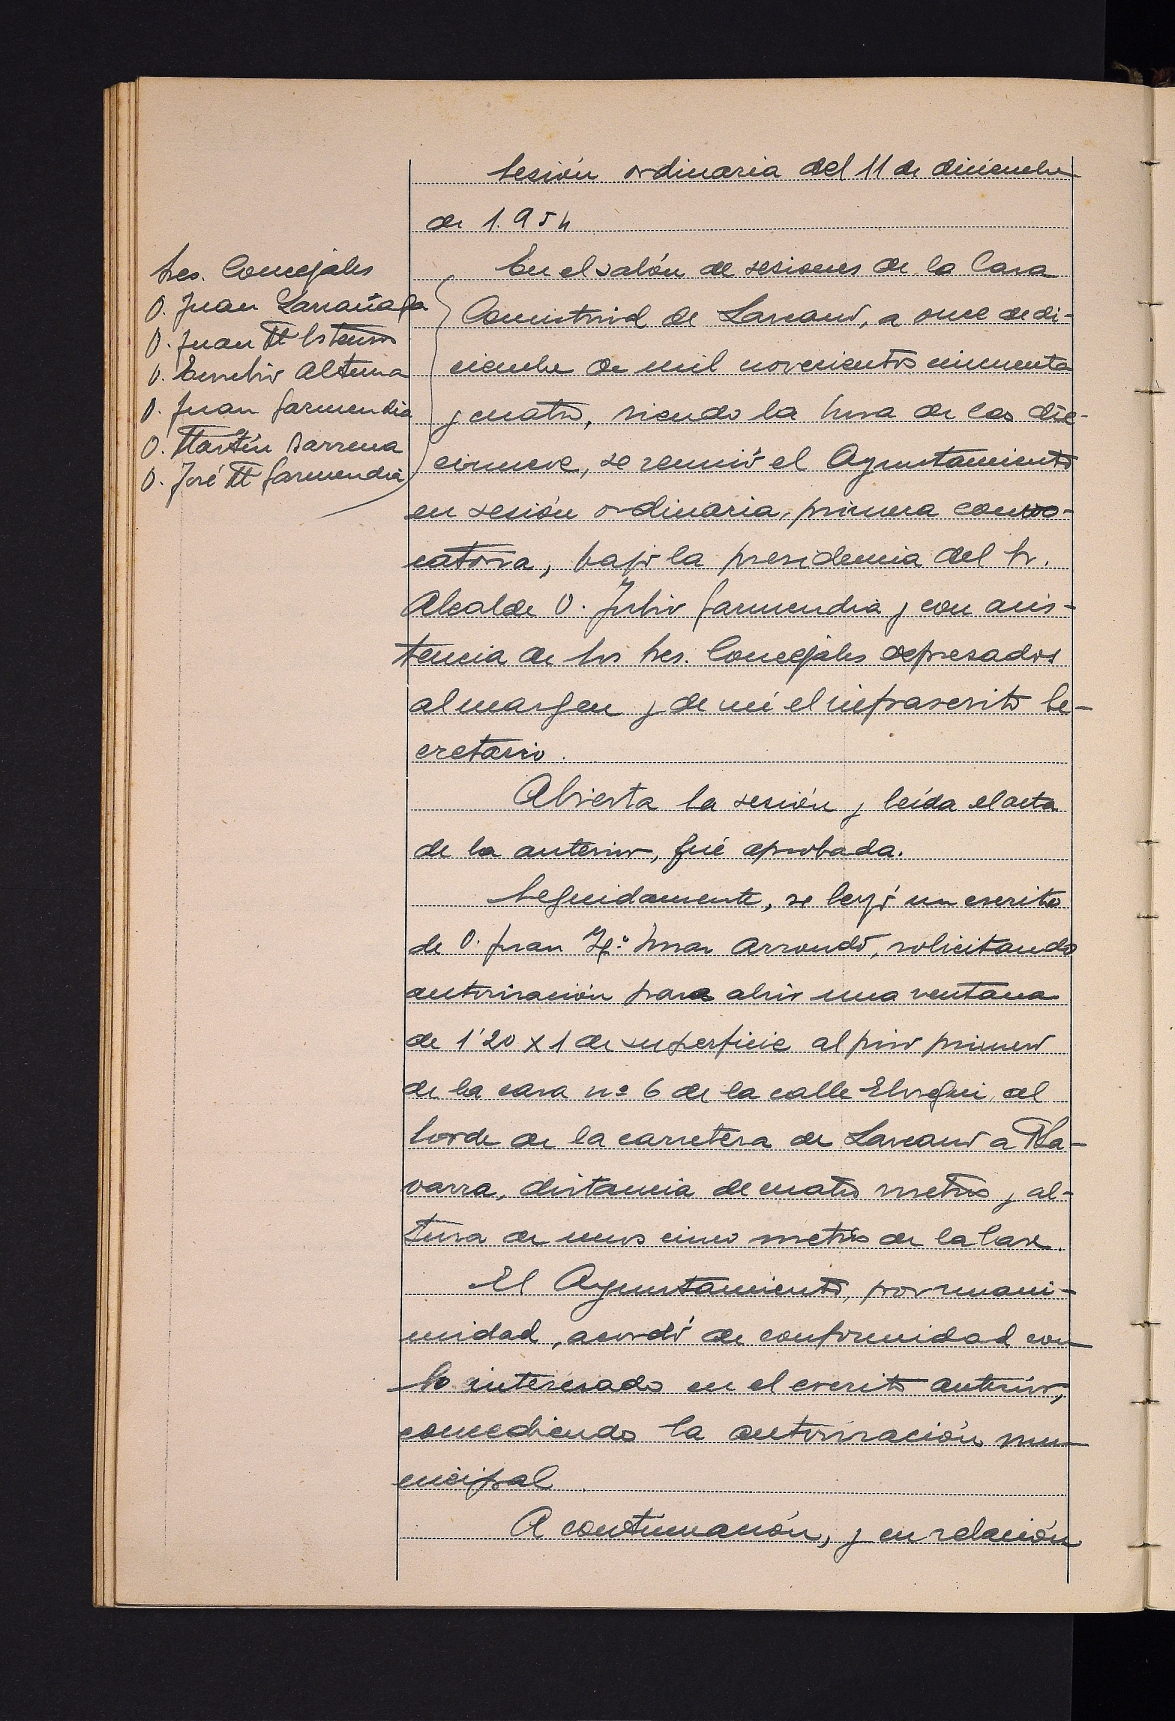 Sesión ordinaria del 11 de diciembre
de 1.954
Sres. Concejales
D. Juan Larrañaga
D. Juan Mª
D. Eusebio Altuna
D. Juan Garmendia
D. Martín Barrena
D. José Mª Garmendia
En el salón de sesiones de la Casa
Consistorial de Lazcano, a once de di-
ciembre de mil novecientos cincuenta
y cuatro, siendo la hora de las die-
cinueve, se reunió el Ayuntamiento
en sesión ordinaria, primera convo-
catoria, bajo la presidencia del Sr.
Alcalde D. Julio Garmendia y con asis-
tencia de los Sres. Concejales expresados
al margen y de mí el infrascrito Se-
cretario.
Abierta la sesión y leída el acta
de la anterior, fué aprobada.
Seguidamente, se leyó un escrito
de D. Juan Arrondo, solicitando
autorización para abrir una ventana
de 1'20 x 1 de superficie al piso primero
de la casa nº 6 de la calle Elosegui, al
borde de la carretera de Lazcano a Na-
varra, distancia de cuatro metros y al-
tura de unos cinco metros de la base.
El Ayuntamiento, por unani-
midad, acordó de conformidad con
lo interesado en el escrito anterior,
concediendo la autorización mu-
nicipal.
A continuación, y en relación